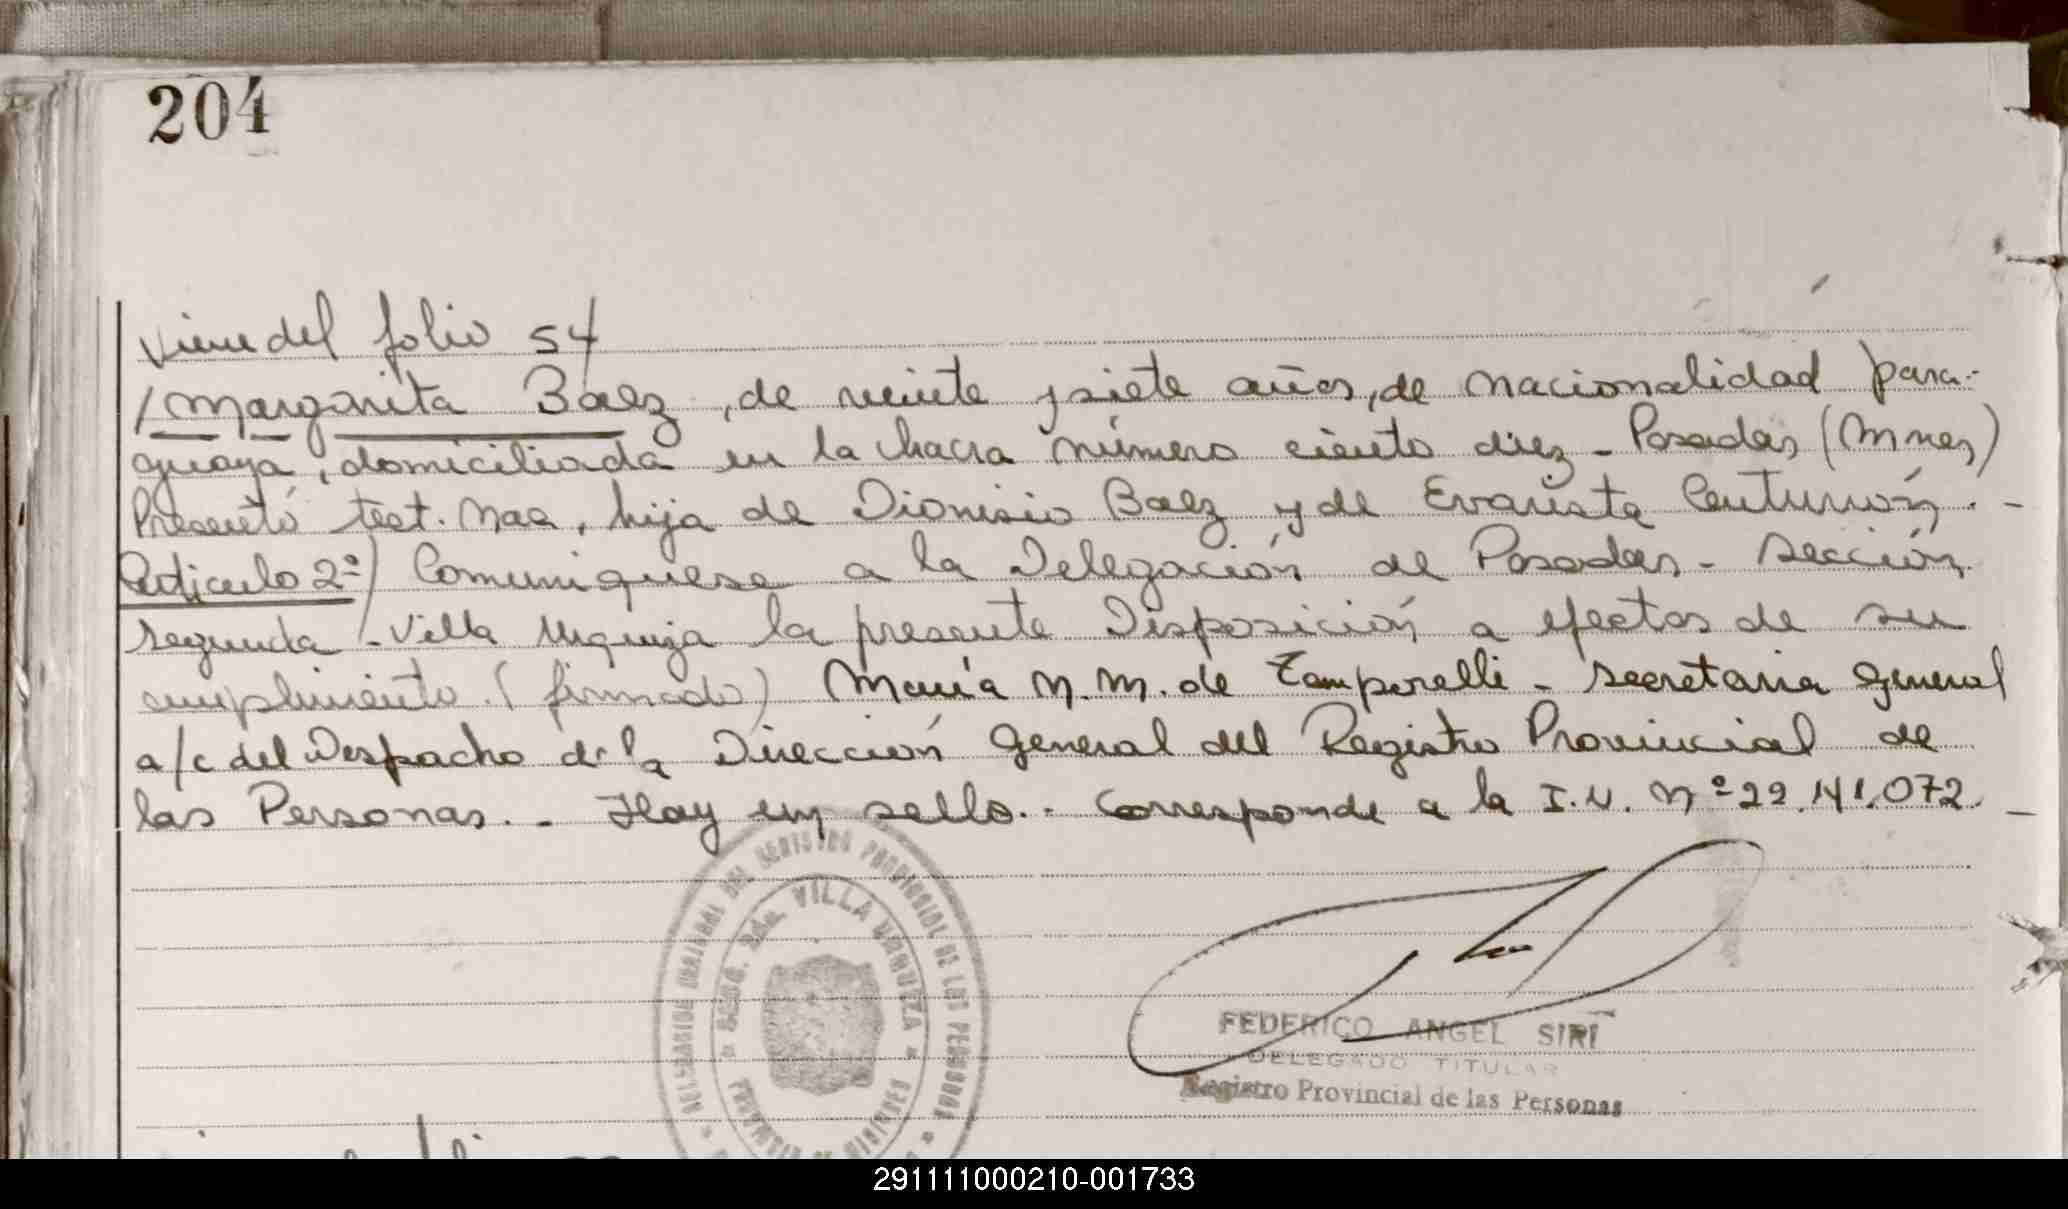 204
Viene del folio 54
/Margarita Baez, de veinte y siete años, de nacionalidad para-
guaya, domiciliada en la chacra número ciento diez - Posadas (Mnes)
Presentó test. Nac, hija de Dionisio Baez y de Evarista Centurión. -
Articulo 2º) Comuniquese a la Delegación de Posadas - Sección
Segunda - Villa Urquiza la presente Disposición a efectos de su
cumplimiento. (firmado) María N. M. de Temporelli - Secretaria General
a/c del Despacho de la Dirección General del Registro Provincial de
las Personas. - Hay un sello. - Corresponde a la I.N. Nº 22.141.072. -
DELEGACION GENERAL DEL REGISTRO PROVINCIAL DE LAS PERSONAS
SECC. 2da. VILLA URQUIZA
PROVINCIA DE MISIONES
FEDERICO ANGEL SIRI
DELEGADO TITULAR
Registro Provincial de las Personas
291111000210-001733